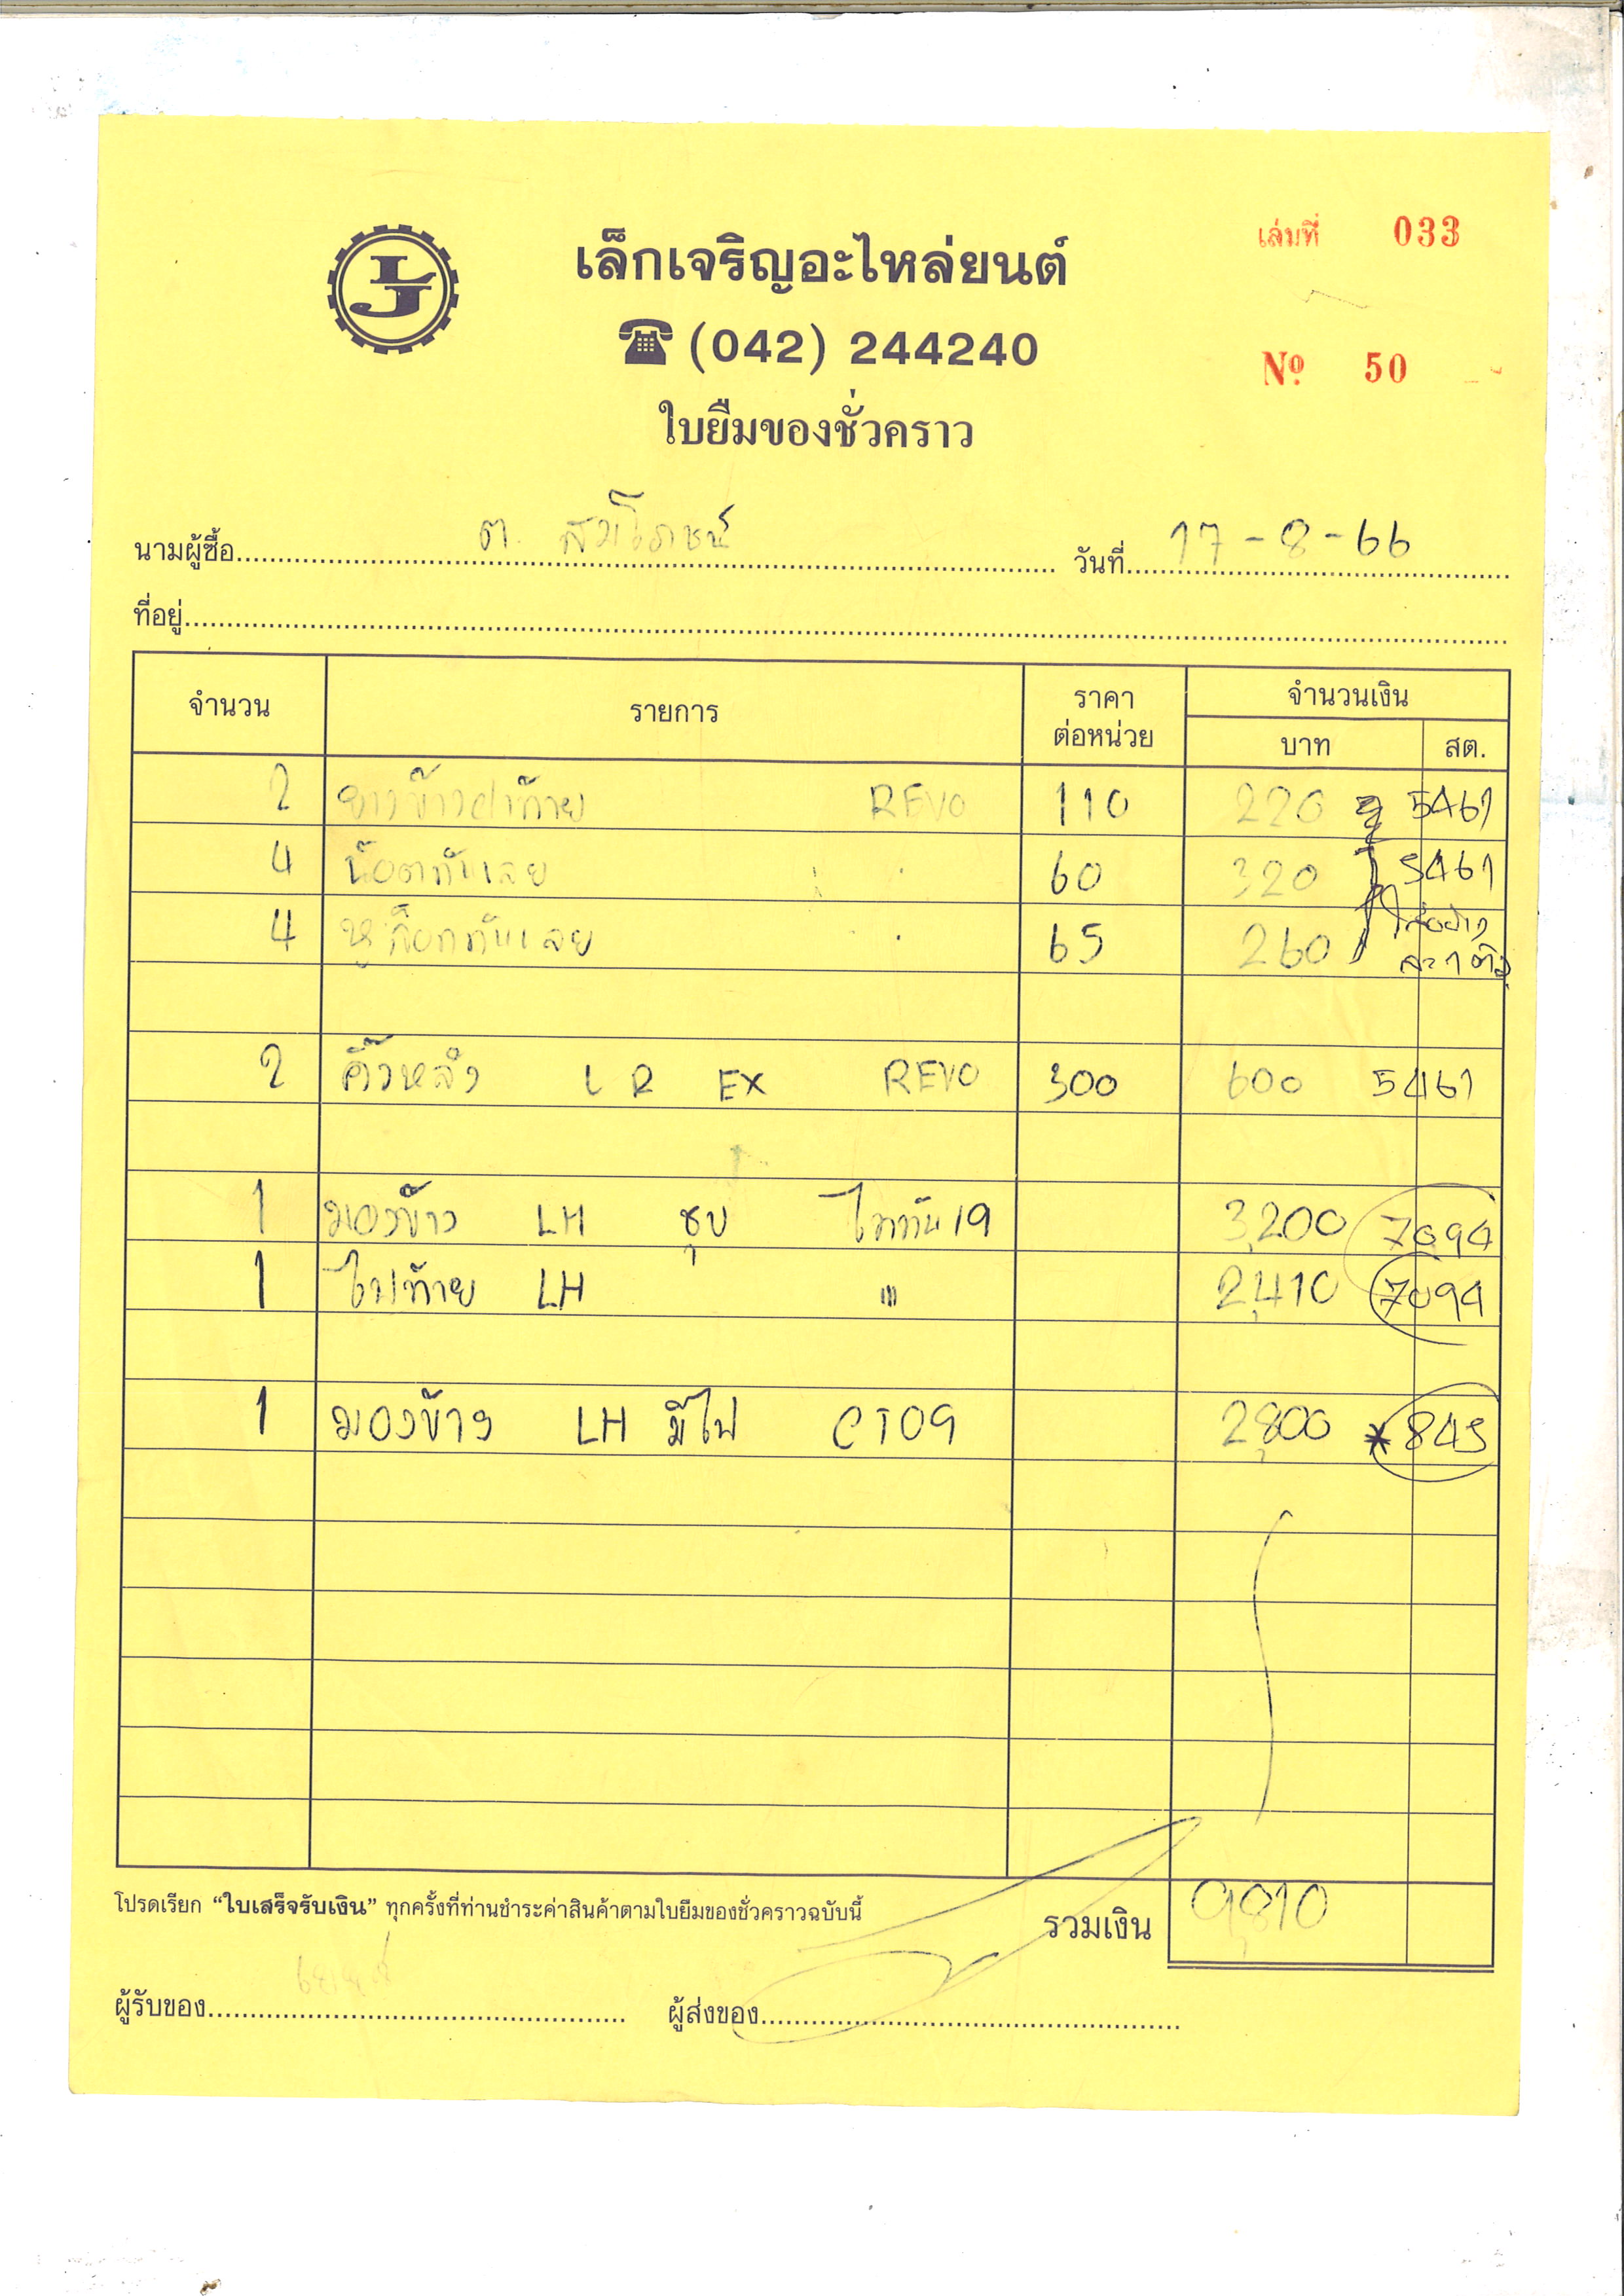 LJ
เล็กเจริญอะไหล่ยนต์
เล่มที่ 033
☎ (042) 244240
Nº 50
ใบยืมของชั่วคราว
นามผู้ซื้อ ต. วันที่ 17-8-66
ที่อยู่
จำนวน รายการ ราคาต่อหน่วย จำนวนเงิน
บาท สต.
2 ยางข้างฝาท้าย REVO 110 220 5461
4 น๊อตทับเลย 60 320 5461
4 หูล็อกทับเลย 65 260
2 คิ้วหลัง L R EX REVO 300 600 5461
1 มองข้าง LH ชุบ ไททัน19 3,200 7094
1 ไฟท้าย LH " 2,410 7094
1 มองข้าง LH มีไฟ CT09 2,800 * 845
โปรดเรียก “ใบเสร็จรับเงิน” ทุกครั้งที่ท่านชำระค่าสินค้าตามใบยืมของชั่วคราวฉบับนี้
รวมเงิน 9,810
ผู้รับของ ผู้ส่งของ